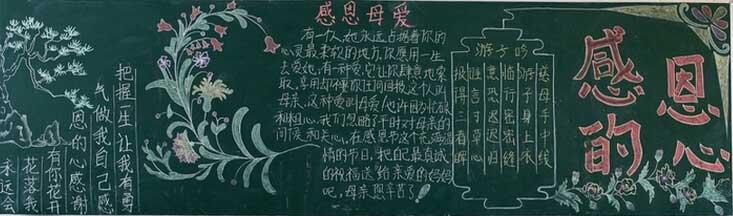 把握一生让我有勇
气做我自己感
恩的心感谢
有你花开
花落我
永远会
感恩母爱
有一个人,她永远占据着你的
心灵最柔软的地方,你愿用一生
去爱她,有一种爱,它让你肆意地索
取,享用,却不要你任何回报,这个人叫
母亲,这种爱叫母爱!也许因为忙碌
和粗心,我们忽略了平时对母亲的
问候和关心,在感恩节这个充满温
情的节日,把最真诚
的祝福送给亲爱的妈妈
吧,母亲,您辛苦了!
游子吟
慈母手中线
游子身上衣
临行密密缝
意恐迟迟归
谁言寸草心
报得三春晖
感恩
的心